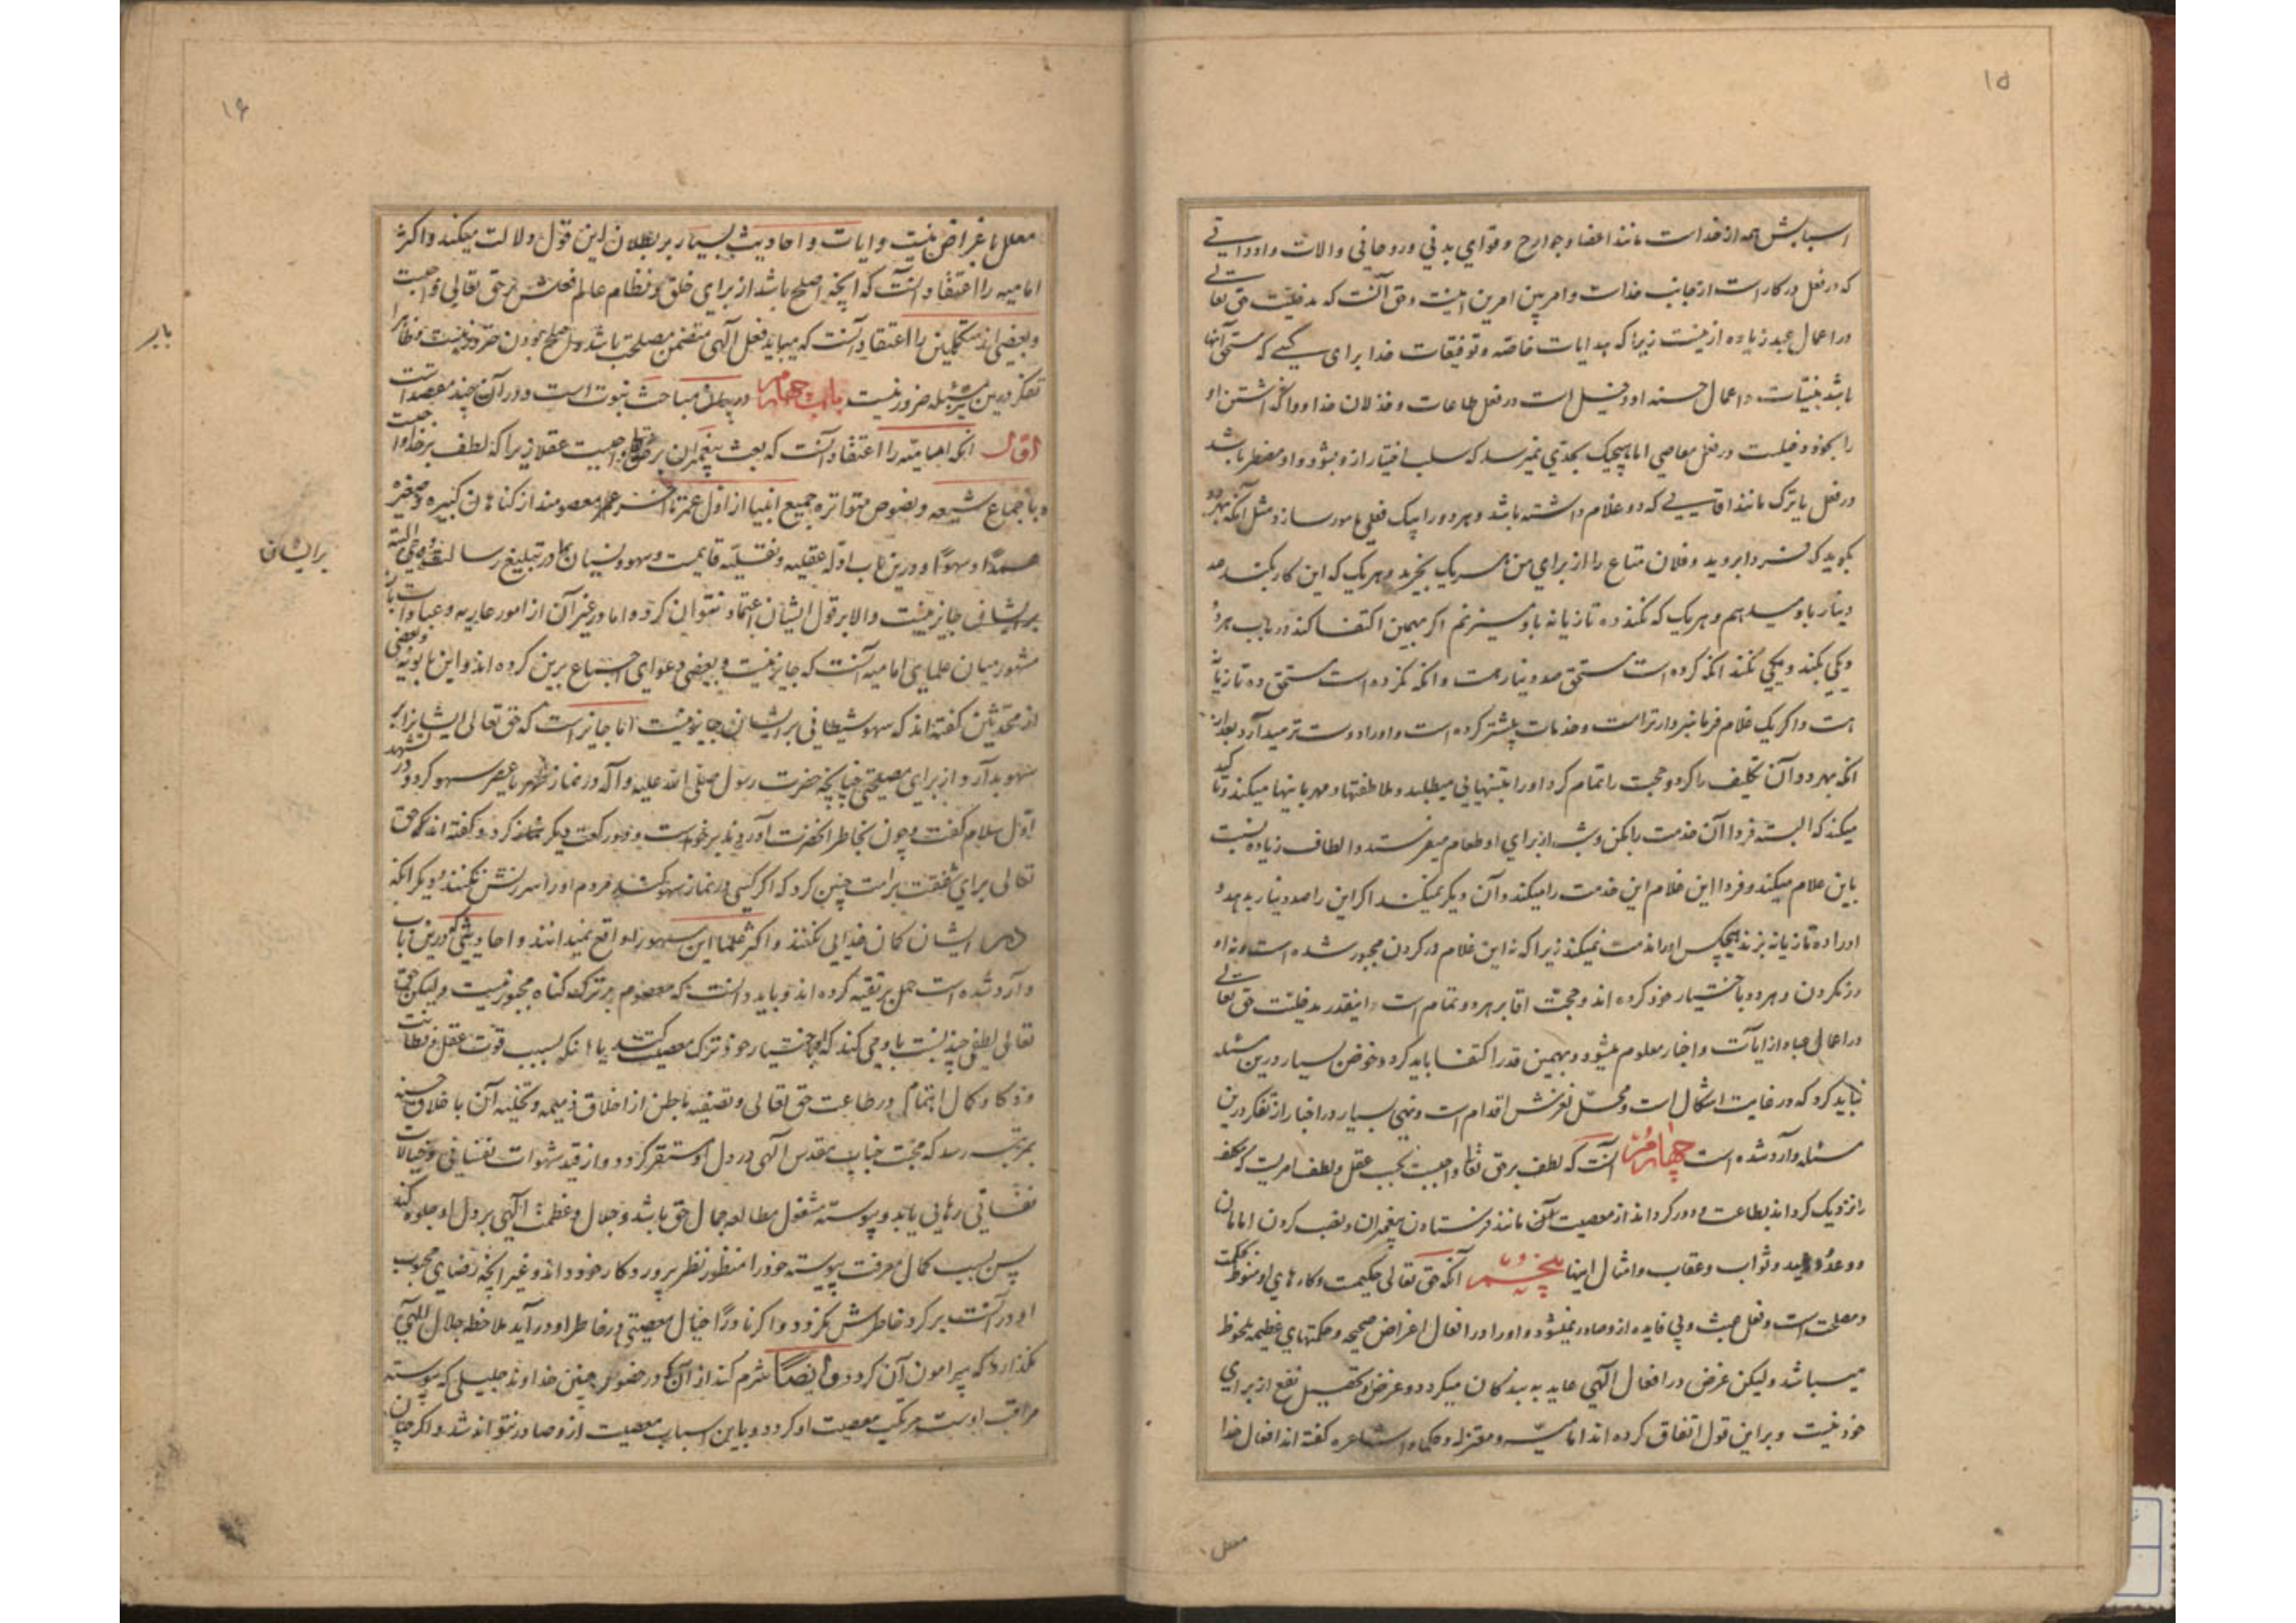 ۱۵
اسبابش همه از خداست مانند اعضا و جوارح و قوای بدنی و روحانی و الات و ادواتی
که در فعل در کار است از جانب خداست و امر بین امرین اینست و حق آنست که مدخلیت حق تعالی
در اعمال عبد زیاده ازینست زیرا که هدایات خاصه و توفیقات خدا برای کسی که مستحق آنها
باشد بنیّات و اعمال حسنه او دخیل است در فعل طاعات و خذلان خدا و واگذاشتن او
را بخود دخیلست در فعل معاصی اما هیچیک بحدّی نمیرسد که سلب اختیار ازو بشود و او مضطر باشد
در فعل یا ترک مانند اقایی که دو غلام داشته باشد و هر دو را بیک فعلی مامور سازد مثل آنکه بهر دو
بگوید که فردا بروید و فلان متاع را از برای من هریک بخرید و هریک که این کار بکند صد
دینار باو میدهم و هریک که نکند ده تازیانه باو میزنم اگر بهمین اکتفا کند در باب هر دو
و یکی بکند و یکی نکند انکه کرده است مستحق صد دینار هست و انکه نکرده است مستحق ده تازیانه
هست و اگر یک غلام فرمانبردارتر است و خدمات بیشتر کرده است و او را دوست تر میدارد بعد از
انکه بهر دو آن تکلیف را کرد و حجت را تمام کرد او را بتنهایی میطلبد و ملاطفتها و مهربانیها میکند و تاکید
میکند که البته فردا آن خدمت را بکن و شب از برای او طعام میفرستد و الطاف زیاده نسبت
باین غلام میکند و فردا این غلام این خدمت را میکند و آن دیگر نمیکند اگر این را صد دینار بدهد و
او را ده تازیانه بزند هیچکس او را مذمت نمیکند زیرا که نه این غلام در کردن مجبور شده است و نه او
در نکردن و هر دو باختیار خود کرده اند و حجت اقا بر هر دو تمام است و اینقدر مدخلیت حق تعالی
در اعمال عباد از ایات و اخبار معلوم میشود و بهمین قدر اکتفا باید کرد و خوض بسیار درین مسئله
نباید کرد که در غایت اشکال است و محل لغزش اقدام است و نهی بسیار در اخبار از تفکر درین
مسئله وارد شده است چهارم آنست که لطف بر حق تعالی واجبست بحسب عقل و لطف امریست که مکلف
را نزدیک گرداند بطاعت و دور گرداند از معصیت مانند فرستادن پیغمبران و نصب کردن امامان
و وعد و وعید و ثواب و عقاب و امثال اینها پنجم آنکه حق تعالی حکیمست و کارهای او منوط بحکمت
و مصلحت است و فعل عبث و بی فایده ازو صادر نمیشود و او را در افعال اغراض صحیحه و حکمتهای عظیمه ملحوظ
میباشد ولیکن غرض در افعال الهی عاید به بندگان میگردد و غرض تحصیل نفع از برای
خود نیست و براین قول اتفاق کرده اند امامیّه و معتزله و حکما و اشاعره گفته اند افعال خدا
معلل
۱۶
معلل باغراض نیست و ایات و احادیث بسیار بر بطلان این قول دلالت میکند و اکثر
امامیه را اعتقاد آنست که انچه اصلح باشد از برای خلق و نظام عالم فعلش بر حق تعالی واجبست
و بعضی از متکلمین را اعتقاد آنست که میباید فعل الهی متضمن مصلحت باشد و اصلح بودن ضرور نیست
تفکر درین مسئله ضرور نیست باب چهارم در بیان مباحث نبوت است و در آن چند مقصد است
اول انکه امامیه را اعتقاد آنست که بعث پیغمبران بر خدا واجبست عقلا زیرا که لطف بر خدا واجبست
و باجماع شیعه و نصوص متواتره جمیع انبیا از اول عمر تا آخر عمر معصومند از گناهان کبیره و صغیره
عمدا و سهوا و درین باب ادله عقلیه و نقلیه قایمست و سهو و نسیان در تبلیغ رسالت
بریشان جایز نیست والا بر قول ایشان اعتماد نتوان کرد و اما در غیر آن از امور عادیه و عبادات
مشهور میان علمای امامیه آنست که جایز نیست و بعضی دعوای اجماع برین کرده اند و ابن بابویه و بعضی
از محدثین گفته اند که سهو شیطانی بر ایشان جایز نیست اما جایز است که حق تعالی ایشانرا
بسهو بدارد از برای مصلحتی چنانچه حضرت رسول صلی الله علیه و آله در نماز ظهر یا عصر سهو کرد و در تشهد
اول سلام گفت و چون بخاطر انحضرت آوردند برخواست و دو رکعت دیگر کرد و گفته اند که حق
تعالی برای شفقت بر امت چنین کرد که اگر کسی در نماز سهو کند مردم او را سرزنش نکنند و دیگر انکه
در ایشان گمان خدایی نکنند و اکثر علما این سهو را واقع نمیدانند و احادیثی که درین باب
وارد شده است حمل بر تقیه کرده اند و باید دانست که معصوم بر ترک گناه مجبور نیست ولیکن حق
تعالی لطفی چند نسبت باو می کند که باختیار خود ترک معصیت کند یا انکه بسبب قوت عقل و فطانت
و ذکا و کمال اهتمام در طاعت حق تعالی و تصفیه باطن از اخلاق ذمیمه و تحلیه آن باخلاق حسنه
بمرتبه رسد که محبت جناب مقدس الهی در دل او مستقر گردد و از قید شهوات نفسانی و خیالات
نفسانی رهایی یابد و پیوسته مشغول مطالعه جمال حق باشد و جلال و عظمت الهی بر دل او جلوه کند
پس بسبب کمال معرفت پیوسته خود را منظور نظر پروردگار خود داند و غیر انچه رضای محبوب
او در آنست بر گرد خاطرش نگردد و اگر نادرا خیال معصیتی در خاطر او در آید ملاحظه جلال الهی
نگذارد که پیرامون آن گردد و ایضا شرم کند از آن که در حضور چنین خداوند جلیلی که پیوسته
مراقب اوست مرتکب معصیت او گردد و باین اسباب معصیت ازو صادر نتواند شد و اگر چنان
بر ایشان